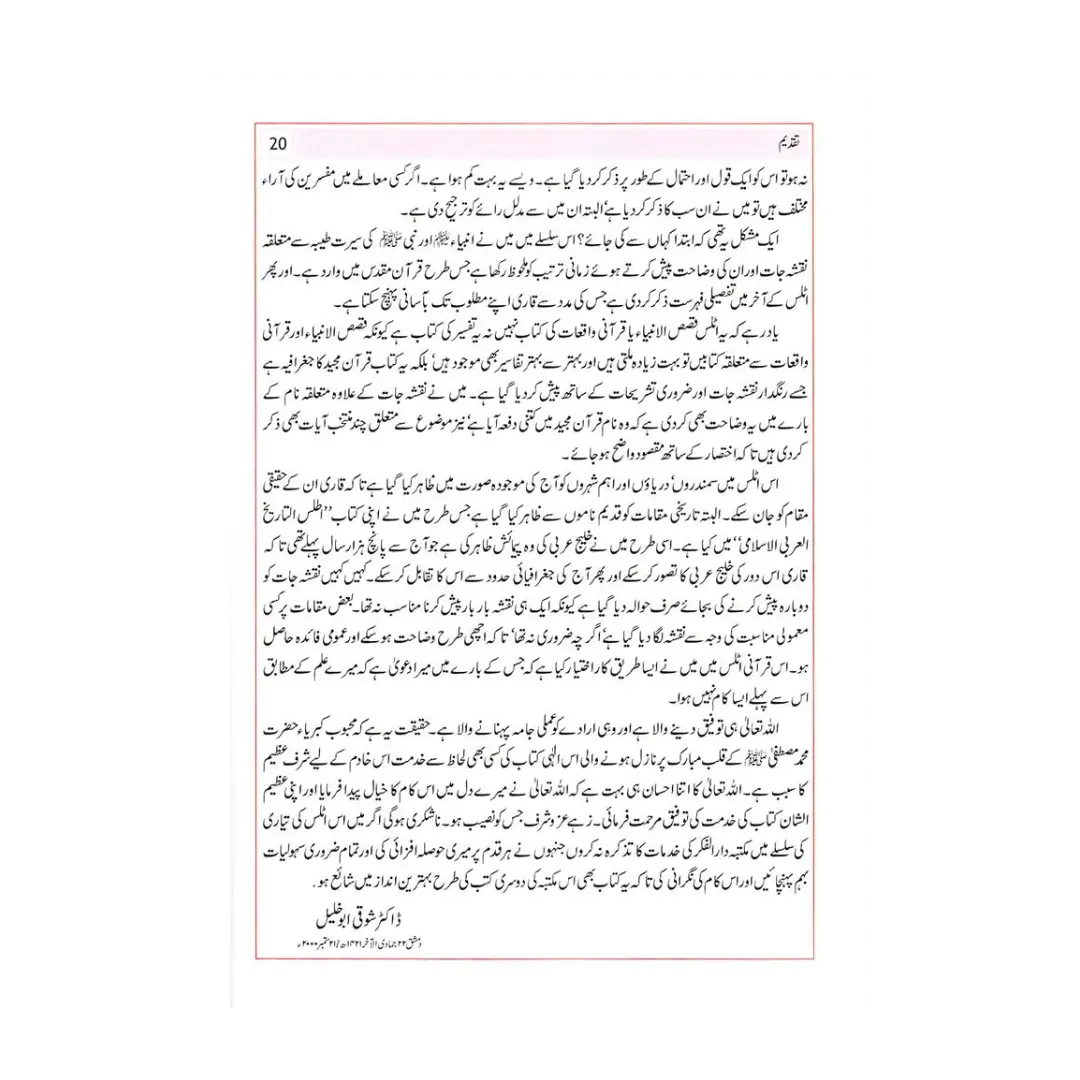 تقدیم 20
نہ ہو تو اس کو ایک قول اور احتمال کے طور پر ذکر کر دیا گیا ہے۔ ویسے یہ بہت کم ہوا ہے۔ اگر کسی معاملے میں مفسرین کی آراء
مختلف ہیں تو میں نے ان سب کا ذکر کر دیا ہے‘ البتہ ان میں سے مدلل رائے کو ترجیح دی ہے۔
ایک مشکل یہ تھی کہ ابتدا کہاں سے کی جائے؟ اس سلسلے میں میں نے انبیاء علیہم السلام اور نبی ﷺ کی سیرت طیبہ سے متعلقہ
نقشہ جات اور ان کی وضاحت پیش کرتے ہوئے زمانی ترتیب کو ملحوظ رکھا ہے جس طرح قرآن مقدس میں وارد ہے۔ اور پھر
اٹلس کے آخر میں تفصیلی فہرست ذکر کر دی ہے جس کی مدد سے قاری اپنے مطلوب تک بآسانی پہنچ سکتا ہے۔
یاد رہے کہ یہ اٹلس قصص الانبیاء یا قرآنی واقعات کی کتاب نہیں نہ یہ تفسیر کی کتاب ہے کیونکہ قصص الانبیاء اور قرآنی
واقعات سے متعلقہ کتابیں تو بہت زیادہ ملتی ہیں اور بہتر سے بہتر تفاسیر بھی موجود ہیں‘ بلکہ یہ کتاب قرآن مجید کا جغرافیہ ہے
جسے رنگدار نقشہ جات اور ضروری تشریحات کے ساتھ پیش کر دیا گیا ہے۔ میں نے نقشہ جات کے علاوہ متعلقہ نام کے
بارے میں یہ وضاحت بھی کر دی ہے کہ وہ نام قرآن مجید میں کتنی دفعہ آیا ہے‘ نیز موضوع سے متعلق چند منتخب آیات بھی ذکر
کر دی ہیں تاکہ اختصار کے ساتھ مقصود واضح ہو جائے۔
اس اٹلس میں سمندروں‘ دریاؤں اور اہم شہروں کو آج کی موجودہ صورت میں ظاہر کیا گیا ہے تاکہ قاری ان کے حقیقی
مقام کو جان سکے۔ البتہ تاریخی مقامات کو قدیم ناموں سے ظاہر کیا گیا ہے جس طرح میں نے اپنی کتاب ’’اطلس التاریخ
العربی الاسلامی‘‘ میں کیا ہے۔ اسی طرح میں نے خلیج عربی کی وہ پیمائش ظاہر کی ہے جو آج سے پانچ ہزار سال پہلے تھی تاکہ
قاری اس دور کی خلیج عربی کا تصور کر سکے اور پھر آج کی جغرافیائی حدود سے اس کا تقابل کر سکے۔ کہیں کہیں نقشہ جات کو
دوبارہ پیش کرنے کی بجائے صرف حوالہ دیا گیا ہے کیونکہ ایک ہی نقشہ بار بار پیش کرنا مناسب نہ تھا۔ بعض مقامات پر کسی
معمولی مناسبت کی وجہ سے نقشہ لگا دیا گیا ہے‘ اگرچہ ضروری نہ تھا‘ تاکہ اچھی طرح وضاحت ہو سکے اور عمومی فائدہ حاصل
ہو۔ اس قرآنی اٹلس میں میں نے ایسا طریق کار اختیار کیا ہے کہ جس کے بارے میں میرا دعویٰ ہے کہ میرے علم کے مطابق
اس سے پہلے ایسا کام نہیں ہوا۔
اللہ تعالیٰ ہی توفیق دینے والا ہے اور وہی ارادے کو عملی جامہ پہنانے والا ہے۔ حقیقت یہ ہے کہ محبوب کبریاء حضرت
محمد مصطفیٰ ﷺ کے قلب مبارک پر نازل ہونے والی اس الٰہی کتاب کی کسی بھی لحاظ سے خدمت اس خادم کے لیے شرف عظیم
کا سبب ہے۔ اللہ تعالیٰ کا اتنا احسان ہی بہت ہے کہ اللہ تعالیٰ نے میرے دل میں اس کام کا خیال پیدا فرمایا اور اپنی عظیم
الشان کتاب کی خدمت کی توفیق مرحمت فرمائی۔ زہے عز و شرف جس کو نصیب ہو۔ ناشکری ہوگی اگر میں اس اٹلس کی تیاری
کی سلسلے میں مکتبہ دارالفکر کی خدمات کا تذکرہ نہ کروں جنہوں نے ہر قدم پر میری حوصلہ افزائی کی اور تمام ضروری سہولیات
بہم پہنچائیں اور اس کام کی نگرانی کی تاکہ یہ کتاب بھی اس مکتبہ کی دوسری کتب کی طرح بہترین انداز میں شائع ہو۔
ڈاکٹر شوقی ابو خلیل
دمشق ۲۲ جمادی الآخر ۱۴۲۱ھ/۲۱ ستمبر ۲۰۰۰ء